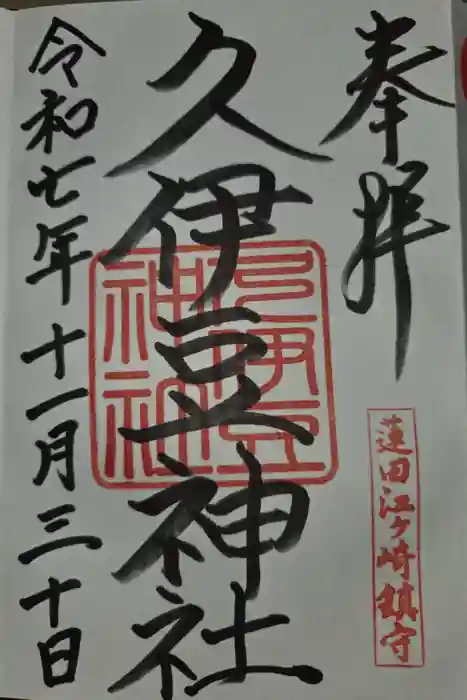 奉拝
蓮田江ヶ崎鎮守
久伊豆神社
久伊豆
神社
令和七年十一月三十日